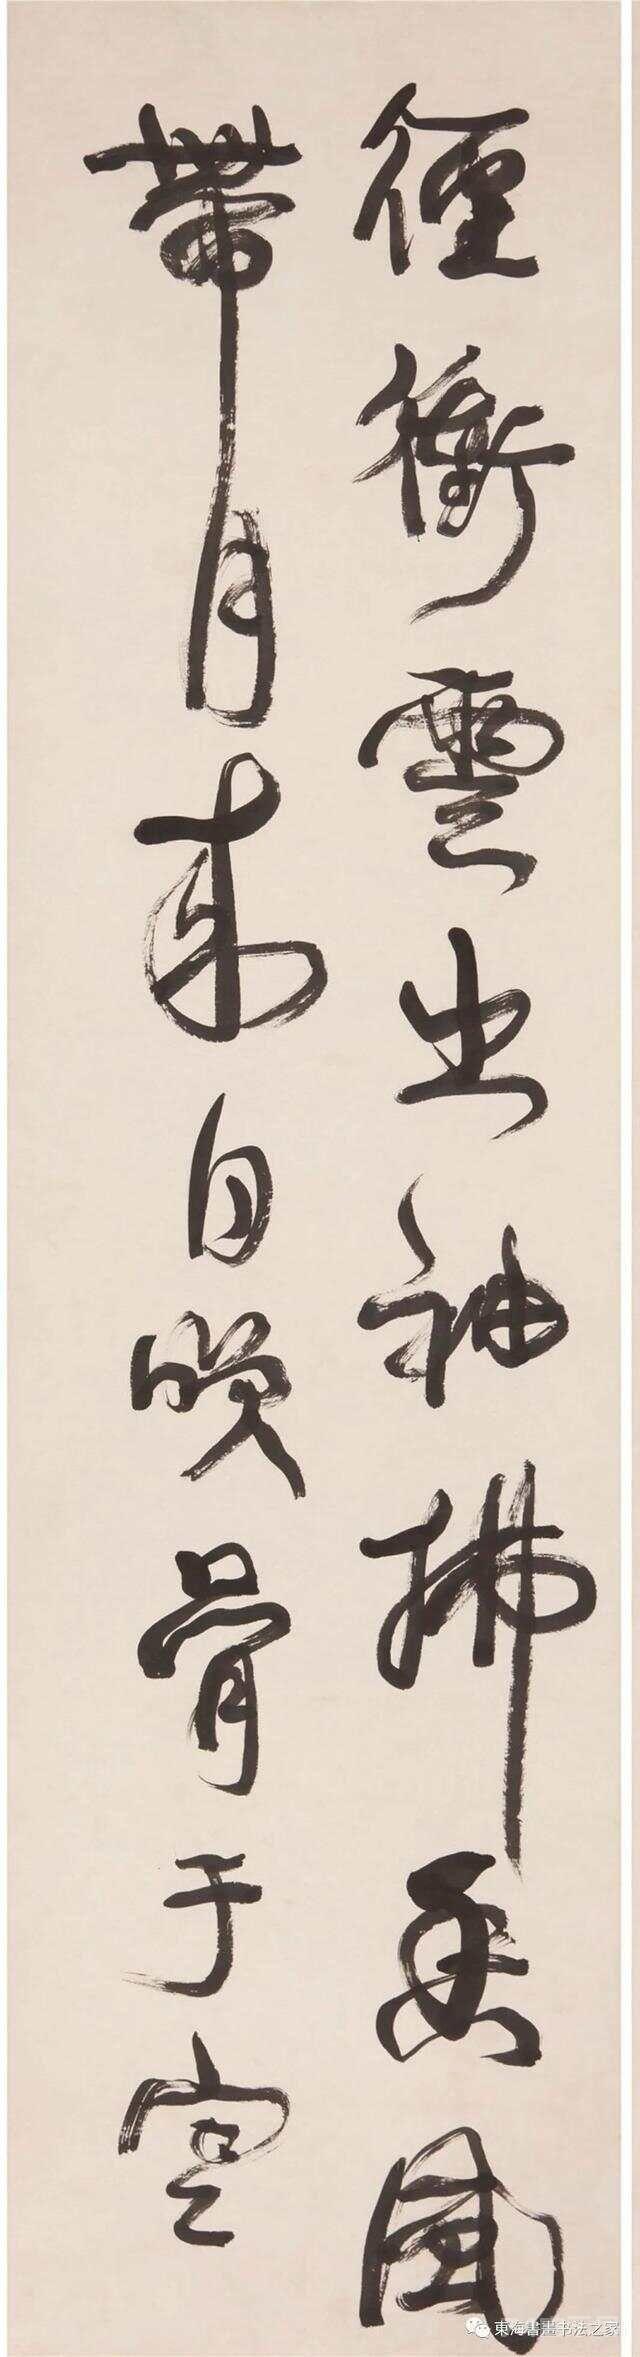 徑衝雲出袖拂香風
帶月來自嘆骨于空
東海書畫书法之家